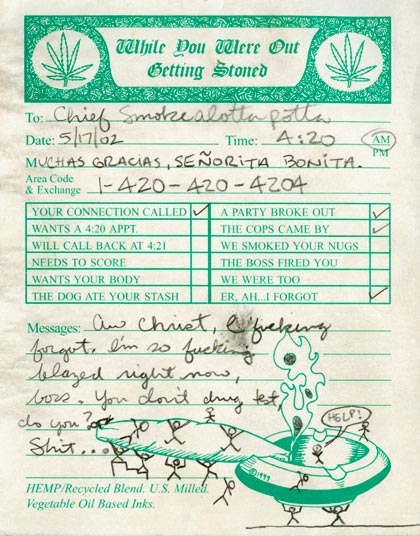 While You Were Out
Getting Stoned
To: Chief Smokealottapotta
Date: 5/17/02 Time: 4:20 AM
PM
MUCHAS GRACIAS, SEÑORITA BONITA.
Area Code
& Exchange 1-420-420-4204
YOUR CONNECTION CALLED ✓ A PARTY BROKE OUT ✓
WANTS A 4:20 APPT. THE COPS CAME BY ✓
WILL CALL BACK AT 4:21 WE SMOKED YOUR NUGS
NEEDS TO SCORE THE BOSS FIRED YOU
WANTS YOUR BODY WE WERE TOO
THE DOG ATE YOUR STASH ER, AH...I FORGOT ✓
Messages: Aw Christ, I fucking
forgot. I'm so fucking
blazed right now,
boss. You don't drug test,
do you?
Shit...
HELP!
©1999
HEMP/Recycled Blend. U.S. Milled.
Vegetable Oil Based Inks.